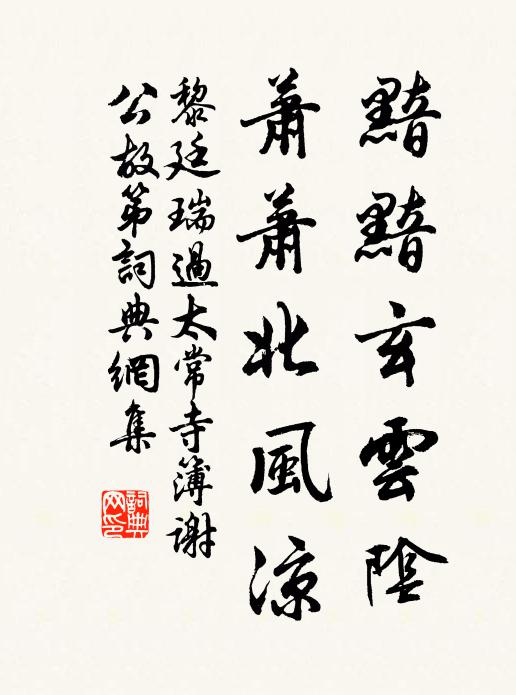 黯黯玄雲陰
蕭蕭北風涼
黎廷瑞過太常寺簿謝
公故第詞典網集
詞典网印